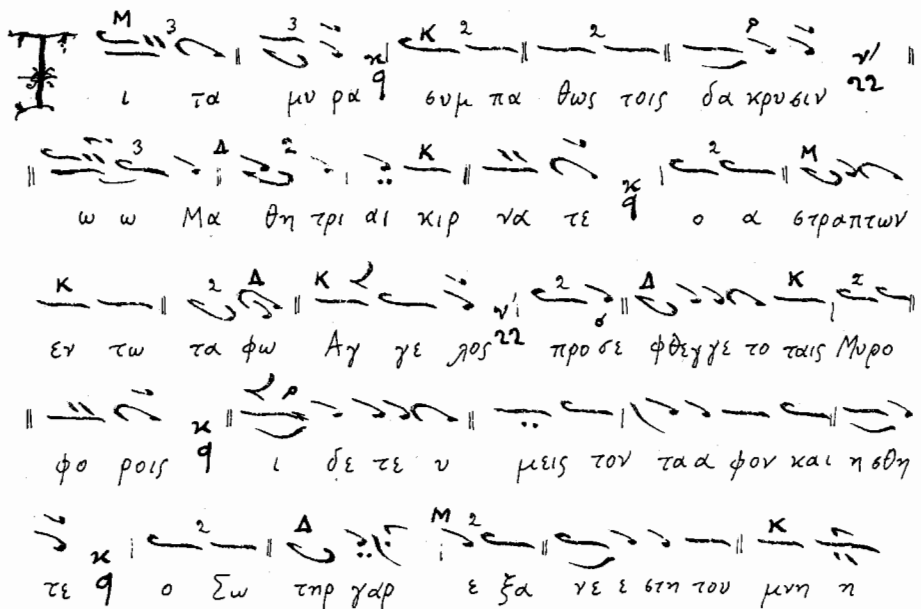 Τι τα μυ ρα συμ πα θως τοις δα κρυ σιν
ω ω Μα θη τρι αι κιρ να τε ο α στραπτων
εν τω τα φω Αγ γε λος προ σε φθεγγε το ταις Μυρο
φο ροις ι δε τε υ μεις τον τα α φον και η σθη
τε ο Σω τηρ γαρ ε ξα νε ε στη του μνη η